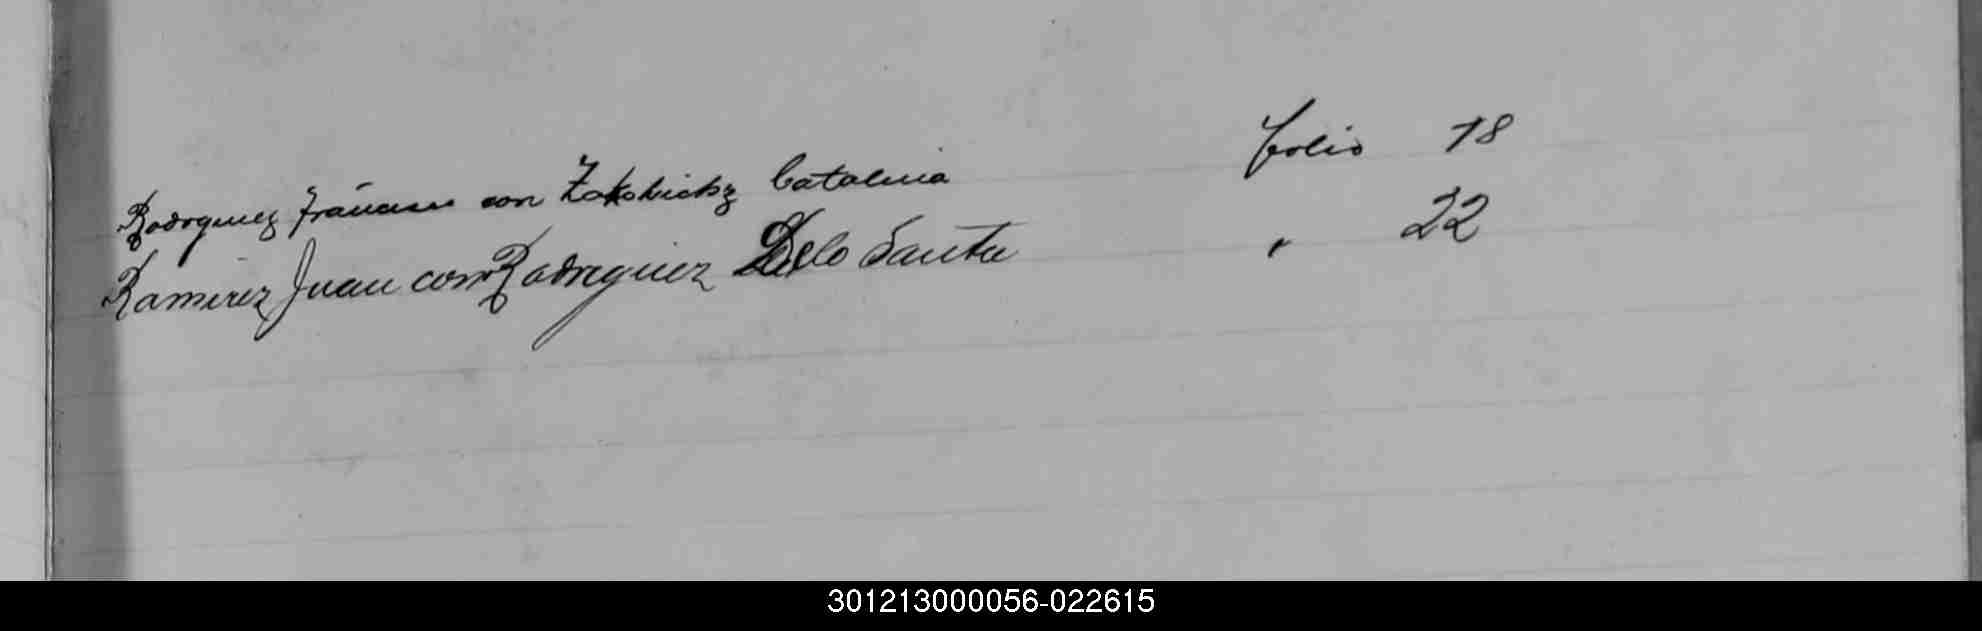 Rodrguez Francisco con Zakobicky Catalina folio 18
Ramirez Juan con Rodriguez Delo Santu " 22
301213000056-022615